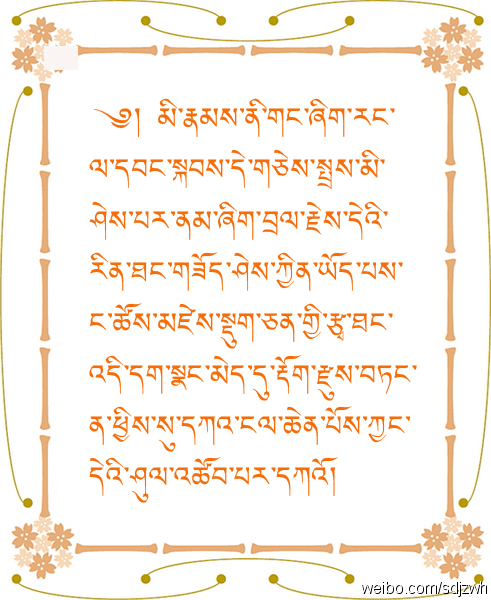 ༄། མི་རྣམས་ནི་གང་ཞིག་རང་
ལ་དབང་སྐབས་དེ་གཅེས་སྤྲས་མི་
ཤེས་པར་ནམ་ཞིག་བྲལ་རྗེས་དེའི་
རིན་ཐང་གཟོད་ཤེས་ཀྱིན་ཡོད་པས་
ང་ཚོས་མཛེས་སྡུག་ཅན་གྱི་རྩྭ་ཐང་
འདི་དག་སྣང་མེད་དུ་རྡོག་རྫུས་བཏང་
ན་ཕྱིས་སུ་དཀའ་ངལ་ཆེན་པོས་ཀྱང་
དེའི་ཤུལ་འཚོབ་པར་དཀའོ།
weibo.com/sdjzwh